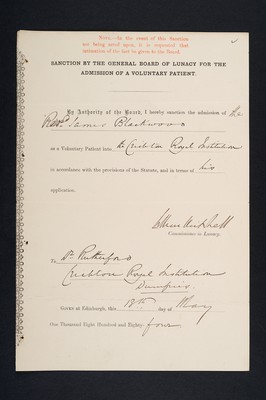 NOTE.—In the event of this Sanction
not being acted upon, it is requested that
intimation of the fact be given to the Board.
SANCTION BY THE GENERAL BOARD OF LUNACY FOR THE
ADMISSION OF A VOLUNTARY PATIENT.
By Authority of the Board, I hereby sanction the admission of the
Revd. James Blackwood
as a Voluntary Patient into the Crichton Royal Institution
in accordance with the provisions of the Statute, and in terms of his
application.
Commissioner in Lunacy.
To Dr. Rutherford
Crichton Royal Institution
Dumfries
GIVEN at Edinburgh, this 13th day of May
One Thousand Eight Hundred and Eighty-four